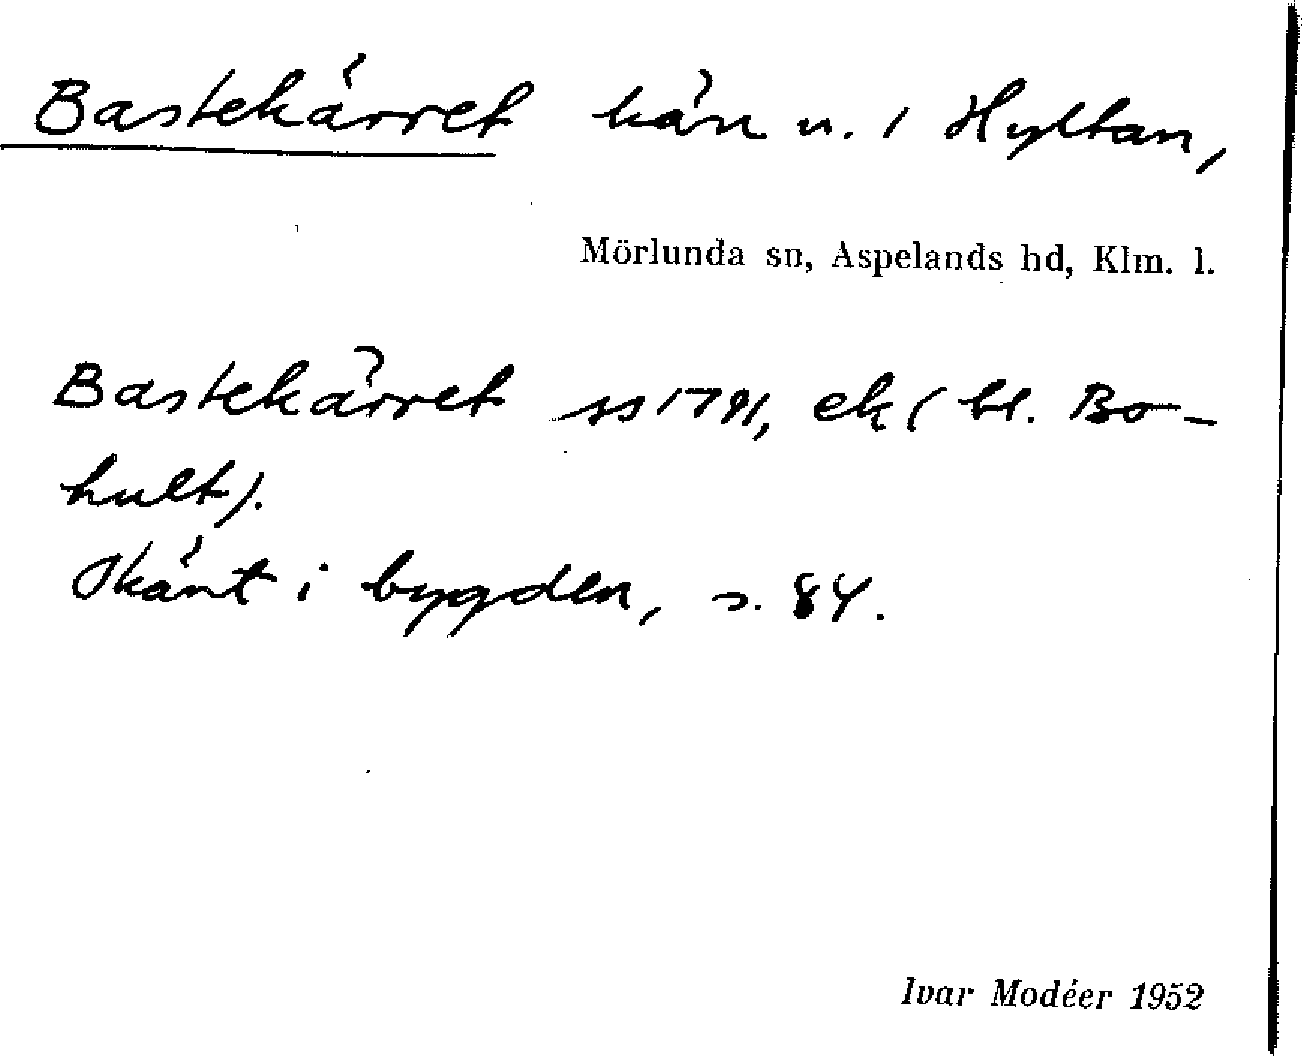 Bastekärret kärr n. i Hyltan,
Mörlunda sn, Aspelands hd, Klm. l.
Bastekärret ss 1791, ek (bl. Bo-
hult).
Okänt i bygden, s. 84.
Ivar Modéer 1952